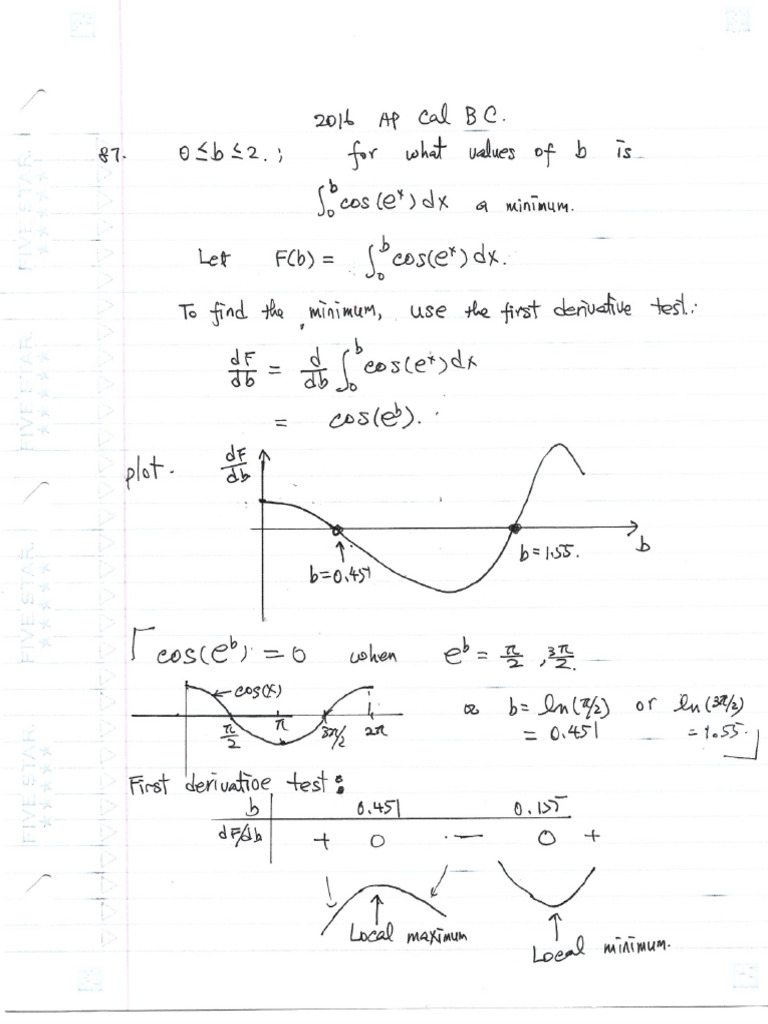 2016 AP Cal BC.
87. 0 ≤ b ≤ 2. ; for what values of b is
∫₀ᵇ cos(eˣ) dx a minimum.
Let F(b) = ∫₀ᵇ cos(eˣ) dx.
To find the minimum, use the first derivative test:
dF/db = d/db ∫₀ᵇ cos(eˣ) dx
= cos(eᵇ).
plot. dF/db
b
b=0.451
b=1.55.
cos(eᵇ) = 0 when eᵇ = π/2, 3π/2.
cos(x)
π/2 π 3π/2 2π
∞ b = ln(π/2) or ln(3π/2)
= 0.451 = 1.55.
First derivative test:
b 0.451 0.155
dF/db + 0 - 0 +
Local maximum
Local minimum.
FIVE STAR.
FIVE STAR.
FIVE STAR.
FIVE STAR.